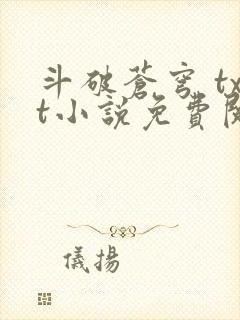 斗破蒼穹 tx
t小說免費
儀揚